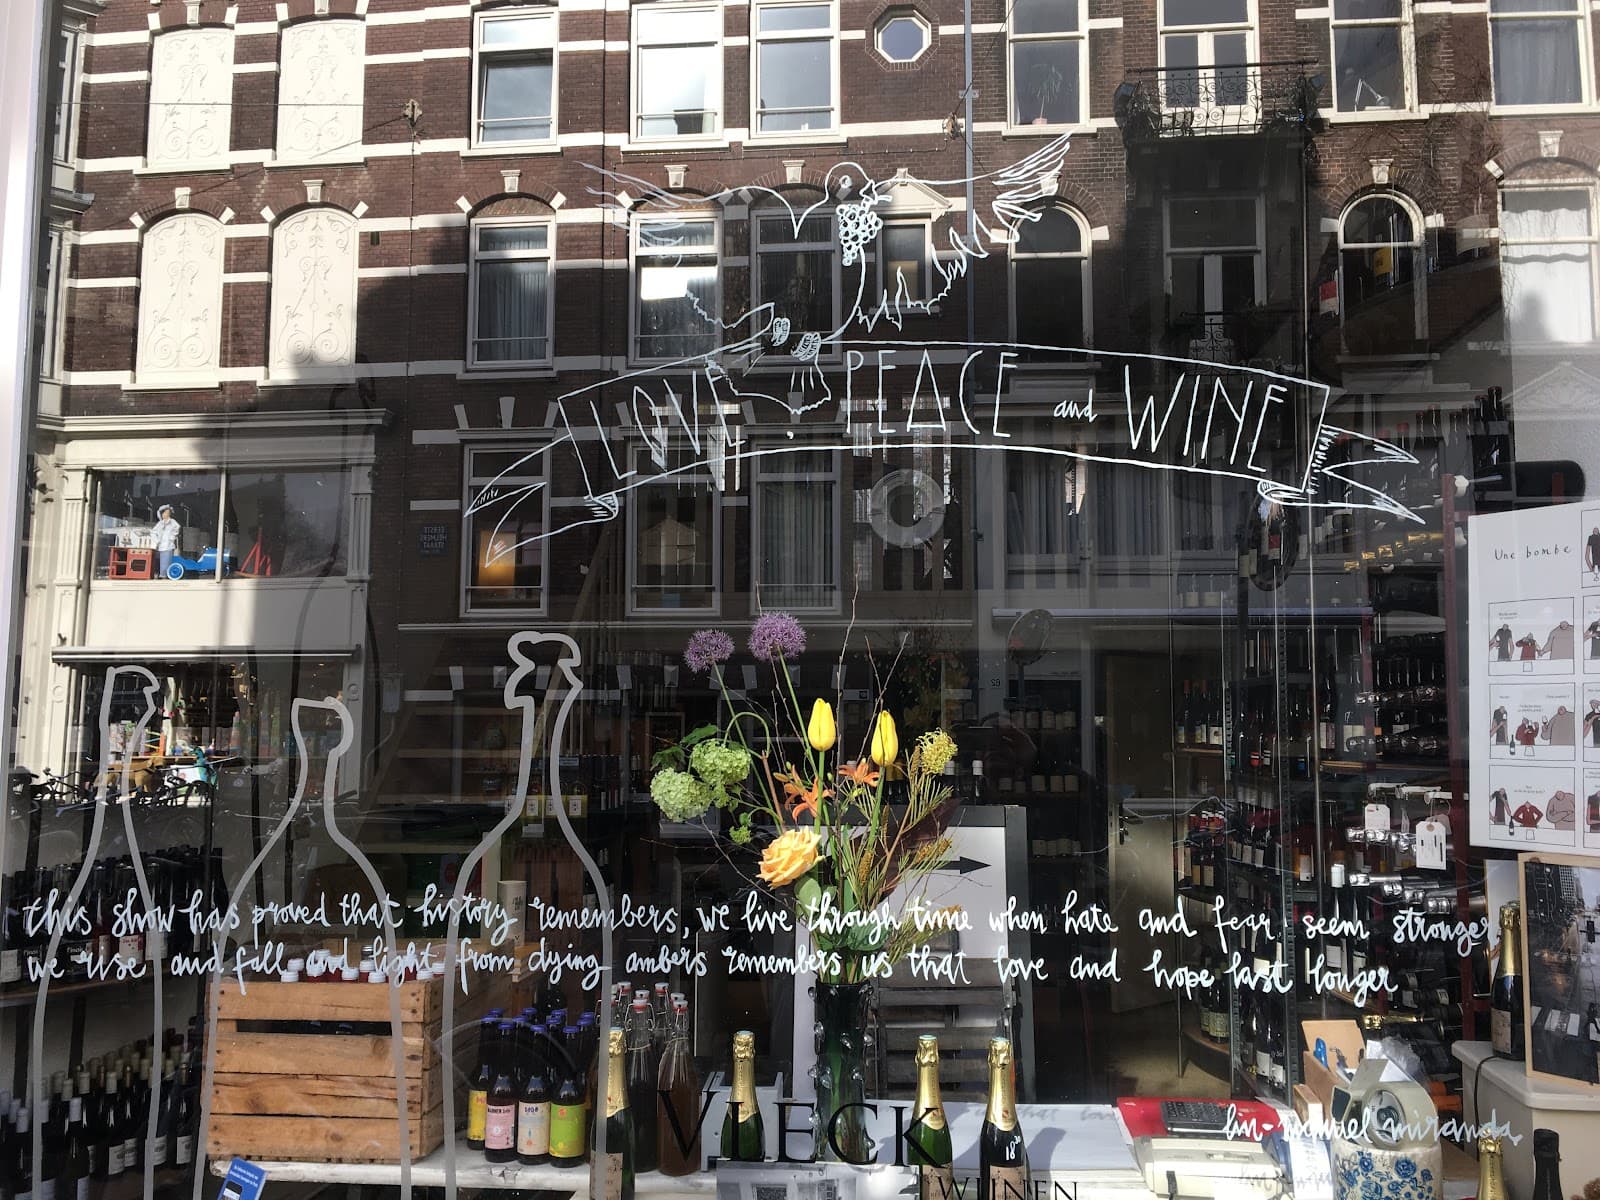 LOVE, PEACE and WINE
Une bombe
this show has proved that history remembers, we live through time when hate and fear seem stronger
we rise and fall and light from dying ambers remembers us that love and hope last longer
lin-manuel miranda
VLECK
WIJNEN